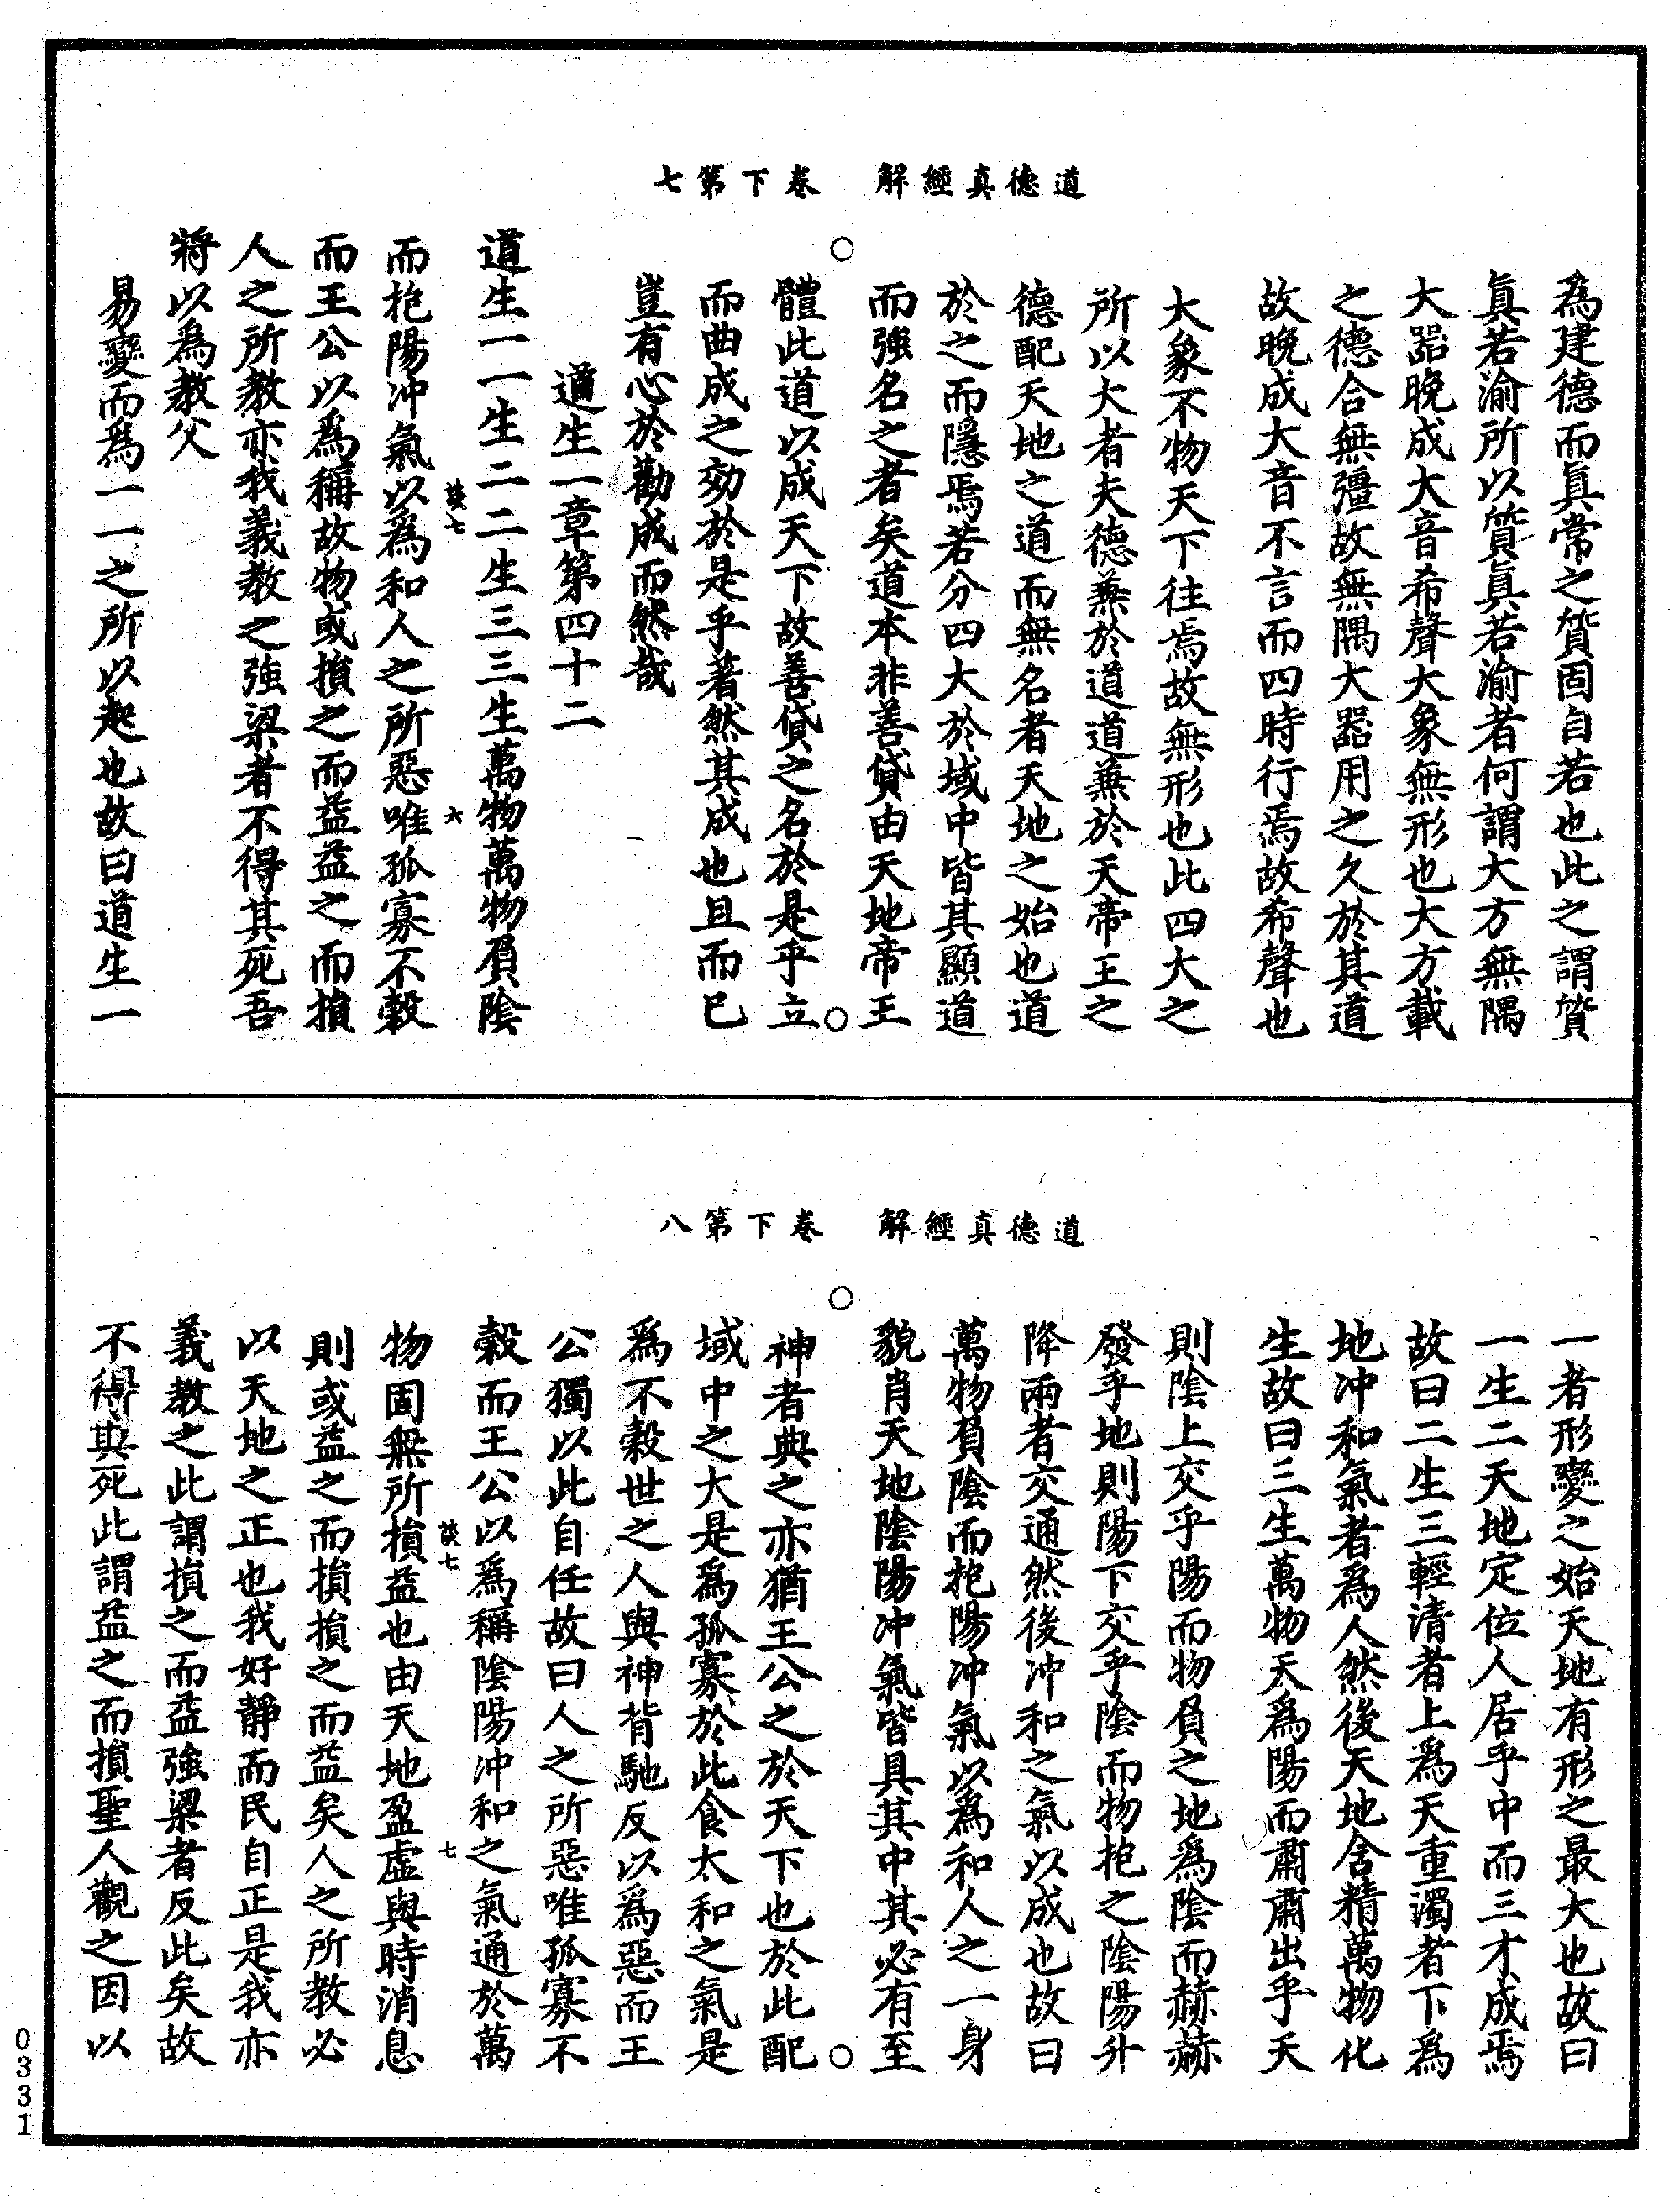 道德真經解　卷下第七
為建德而眞常之質固自若也此之謂質
眞若渝所以質眞若渝者何謂大方無隅
大器晚成大音希聲大象無形也大方載
之德合無彊故無隅大器用之久於其道
故晚成大音不言而四時行焉故希聲也
大象不物天下往焉故無形也此四大之
所以大者夫德兼於道道兼於天帝王之
德配天地之道而無名者天地之始也道
於之而隱焉若分四大於域中皆其顯道
而強名之者矣道本非善貸由天地帝王
體此道以成天下故善貸之名於是乎立
而曲成之効於是乎著然其成也且而已
豈有心於勸成而然哉
道生一章第四十二
道生一一生二二生三三生萬物萬物負陰
談七　六
而抱陽冲氣以為和人之所惡唯孤寡不穀
而王公以爲稱故物或損之而益益之而損
人之所教亦我義教之強梁者不得其死吾
將以爲教父
易變而為一一之所以起也故曰道生一
道德真經解　卷下第八
一者形變之始天地有形之最大也故曰
一生二天地定位人居乎中而三才成焉
故曰二生三輕清者上爲天重濁者下爲
地冲和氣者爲人然後天地含精萬物化
生故曰三生萬物天爲陽而肅肅出乎天
則陰上交乎陽而物負之地爲陰而赫赫
發乎地則陽下交乎陰而物抱之陰陽升
降兩者交通然後冲和之氣以成也故曰
萬物負陰而抱陽冲氣以為和人之一身
貌肖天地陰陽冲氣皆具其中其必有至
神者典之亦猶王公之於天下也於此配
域中之大是爲孤寡於此食太和之氣是
爲不穀世之人與神背馳反以爲惡而王
公獨以此自任故曰人之所惡唯孤寡不
穀而王公以爲稱陰陽冲和之氣通於萬
談七　七
物固無所損益也由天地盈虛與時消息
則或益之而損損之而益矣人之所教必
以天地之正也我好靜而民自正是我亦
義教之此謂損之而益強梁者反此矣故
不得其死此謂益之而損聖人觀之因以
0331